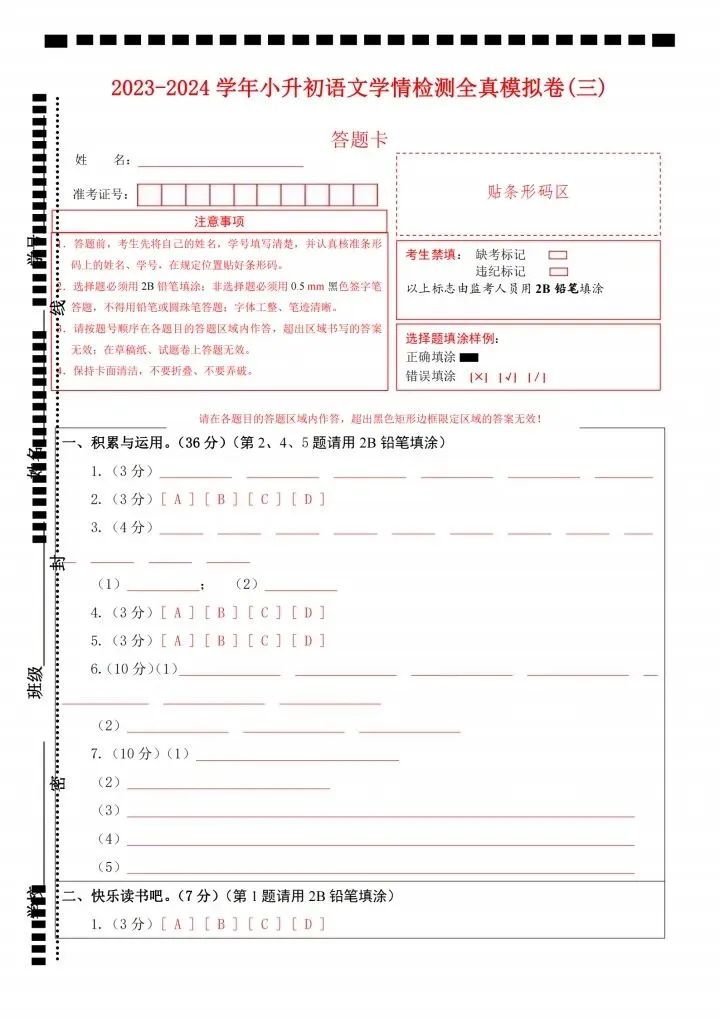 2023-2024 学年小升初语文学情检测全真模拟卷(三)
答题卡
姓　　名：
准考证号：
贴条形码区
注意事项
1．答题前，考生先将自己的姓名，学号填写清楚，并认真核准条形
码上的姓名、学号，在规定位置贴好条形码。
2．选择题必须用 2B 铅笔填涂；非选择题必须用 0.5 mm 黑色签字笔
答题，不得用铅笔或圆珠笔答题；字体工整、笔迹清晰。
3．请按题号顺序在各题目的答题区域内作答，超出区域书写的答案
无效；在草稿纸、试题卷上答题无效。
4．保持卡面清洁，不要折叠、不要弄破。
考生禁填：　缺考标记
违纪标记
以上标志由监考人员用 2B 铅笔填涂
选择题填涂样例：
正确填涂
错误填涂　[×]　[√]　[/]
请在各题目的答题区域内作答，超出黑色矩形边框限定区域的答案无效！
一、积累与运用。（36 分）（第 2、4、5 题请用 2B 铅笔填涂）
1.（3 分）
2.（3 分）[ A ] [ B ] [ C ] [ D ]
3.（4 分）
（1）；　（2）
4.（3 分）[ A ] [ B ] [ C ] [ D ]
5.（3 分）[ A ] [ B ] [ C ] [ D ]
6.（10 分）（1）
（2）
7.（10 分）（1）
（2）
（3）
（4）
（5）
二、快乐读书吧。（7 分）（第 1 题请用 2B 铅笔填涂）
1.（3 分）[ A ] [ B ] [ C ] [ D ]
学校
班级
姓名
学号
密
封
线